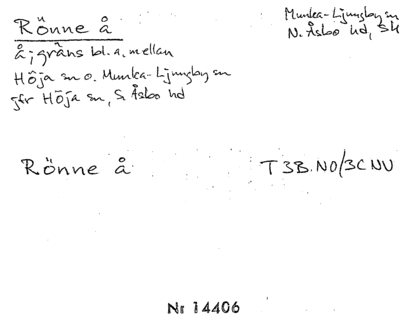 Rönne å
Munka-Ljungby sn
N. Åsbo hd, Sk
å; gräns bl. a. mellan
Höja sn o. Munka-Ljungby sn
jfr Höja sn, S. Åsbo hd
Rönne å
T 3B.NO/3C NV
Nr 14406